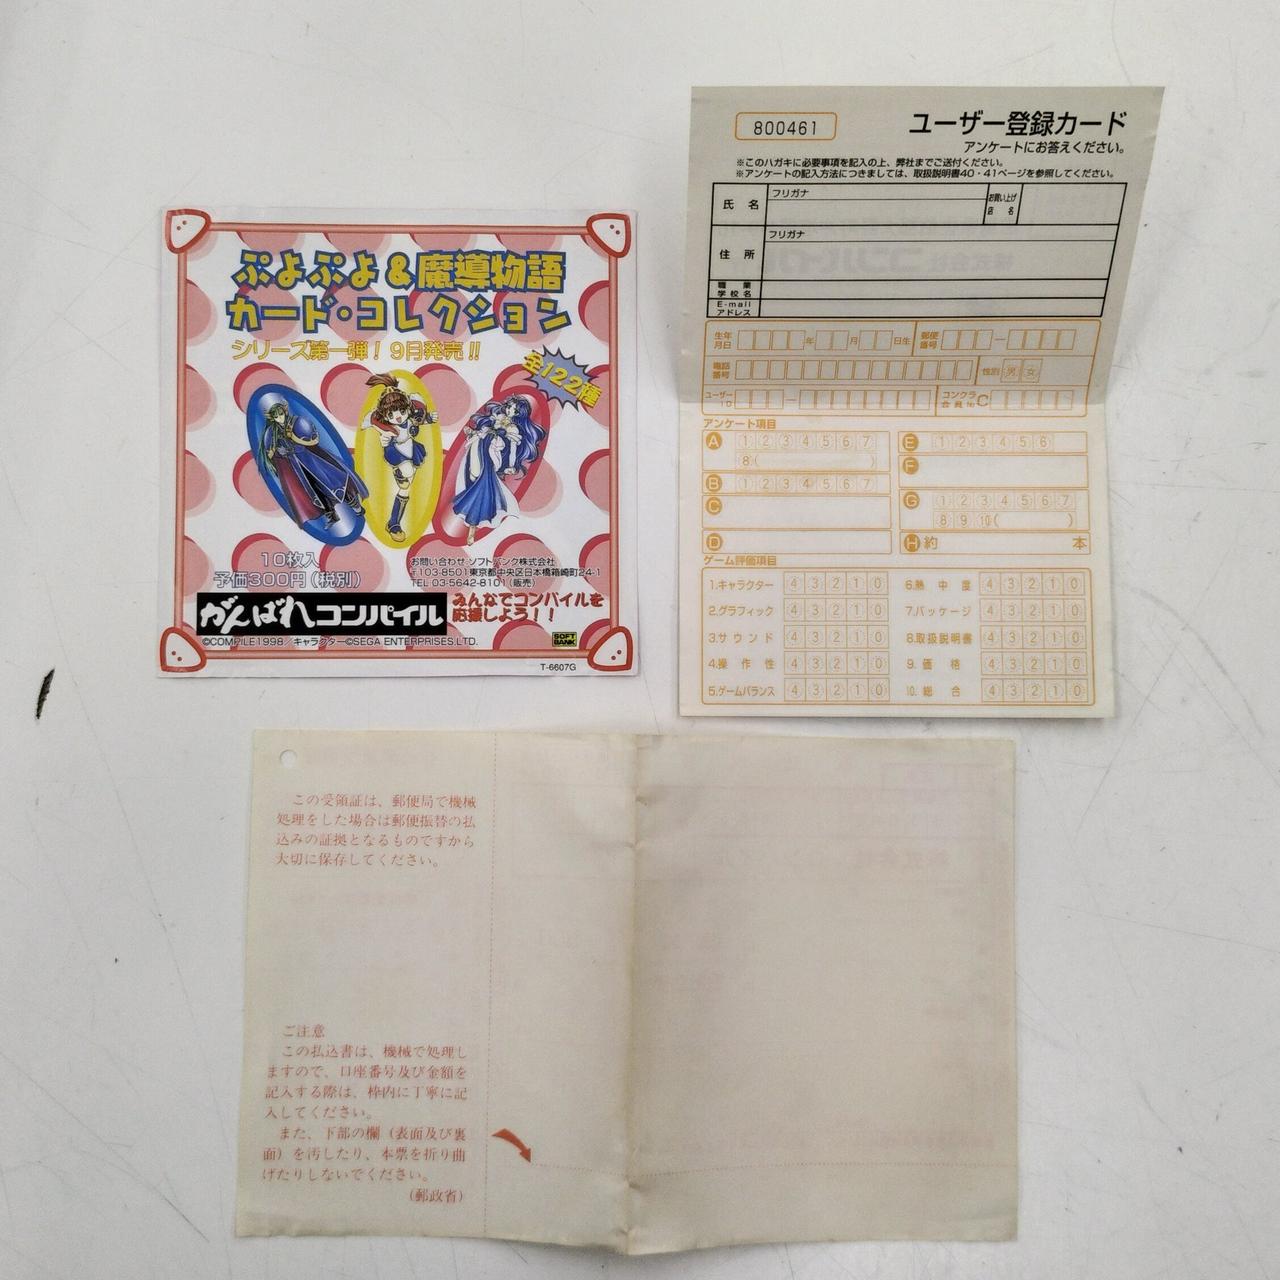 ぷよぷよ&魔導物語
カード・コレクション
シリーズ第一弾！9月発売!!
全122種
10枚入
予価300円(税別)
お問い合わせ ソフトバンク株式会社
〒103-8501東京都中央区日本橋箱崎町24-1
TEL 03-5642-8101(販売)
がんばれコンパイル
みんなでコンパイルを
応援しよう！！
©COMPILE1998／キャラクター©SEGA ENTERPRISES,LTD.
SOFT
BANK
T-6607G
800461
ユーザー登録カード
アンケートにお答えください。
※このハガキに必要事項を記入の上、弊社までご送付ください。
※アンケートの記入方法につきましては、取扱説明書40・41ページを参照してください。
氏名 フリガナ お買い上げ店名
住所 フリガナ
職業
学校名
E-mail
アドレス
生年月日 年 月 日生 郵便番号 ―
電話番号 性別 男 女
ユーザーID ― コンクラ会員No C
アンケート項目
A ① ② ③ ④ ⑤ ⑥ ⑦
⑧( )
B ① ② ③ ④ ⑤ ⑥ ⑦
C
D
E ① ② ③ ④ ⑤ ⑥
F
G ① ② ③ ④ ⑤ ⑥ ⑦
⑧ ⑨ ⑩( )
H 約 本
ゲーム評価項目
1.キャラクター ④ ③ ② ① ⓪
2.グラフィック ④ ③ ② ① ⓪
3.サウンド ④ ③ ② ① ⓪
4.操作性 ④ ③ ② ① ⓪
5.ゲームバランス ④ ③ ② ① ⓪
6.熱中度 ④ ③ ② ① ⓪
7.パッケージ ④ ③ ② ① ⓪
8.取扱説明書 ④ ③ ② ① ⓪
9.価格 ④ ③ ② ① ⓪
10.総合 ④ ③ ② ① ⓪
この受領証は、郵便局で機械
処理をした場合は郵便振替の払
込みの証拠となるものですから
大切に保存してください。
ご注意
この払込書は、機械で処理し
ますので、口座番号及び金額を
記入する際は、枠内に丁寧に記
入してください。
また、下部の欄（表面及び裏
面）を汚したり、本票を折り曲
げたりしないでください。
（郵政省）